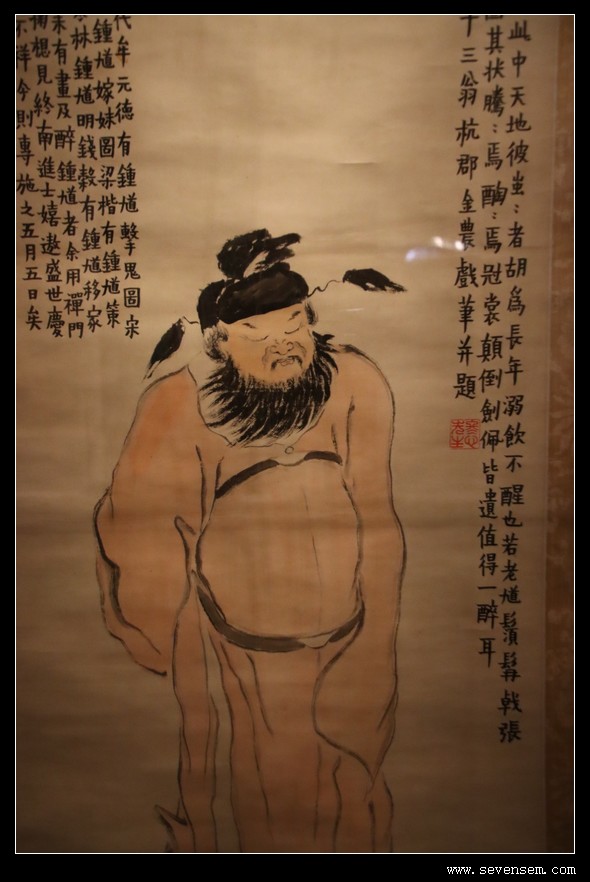 此中天地彼蚩:者胡為長年溺飲不醒也若老馗鬚髯戟張
其狀騰:焉醄:焉冠裳顛倒劍佩皆遺值得一醉耳
十三翁杭郡金農戲筆并題
代牟元德有鍾馗擊鬼圖宋
鍾馗嫁妹圖梁楷有鍾馗策
林鍾馗明錢穀有鍾馗移家
未有畫及醉鍾馗者余用禪門
見終南進士嬉遨盛世慶
祥今則專施之五月五日矣
www.sevensem.com